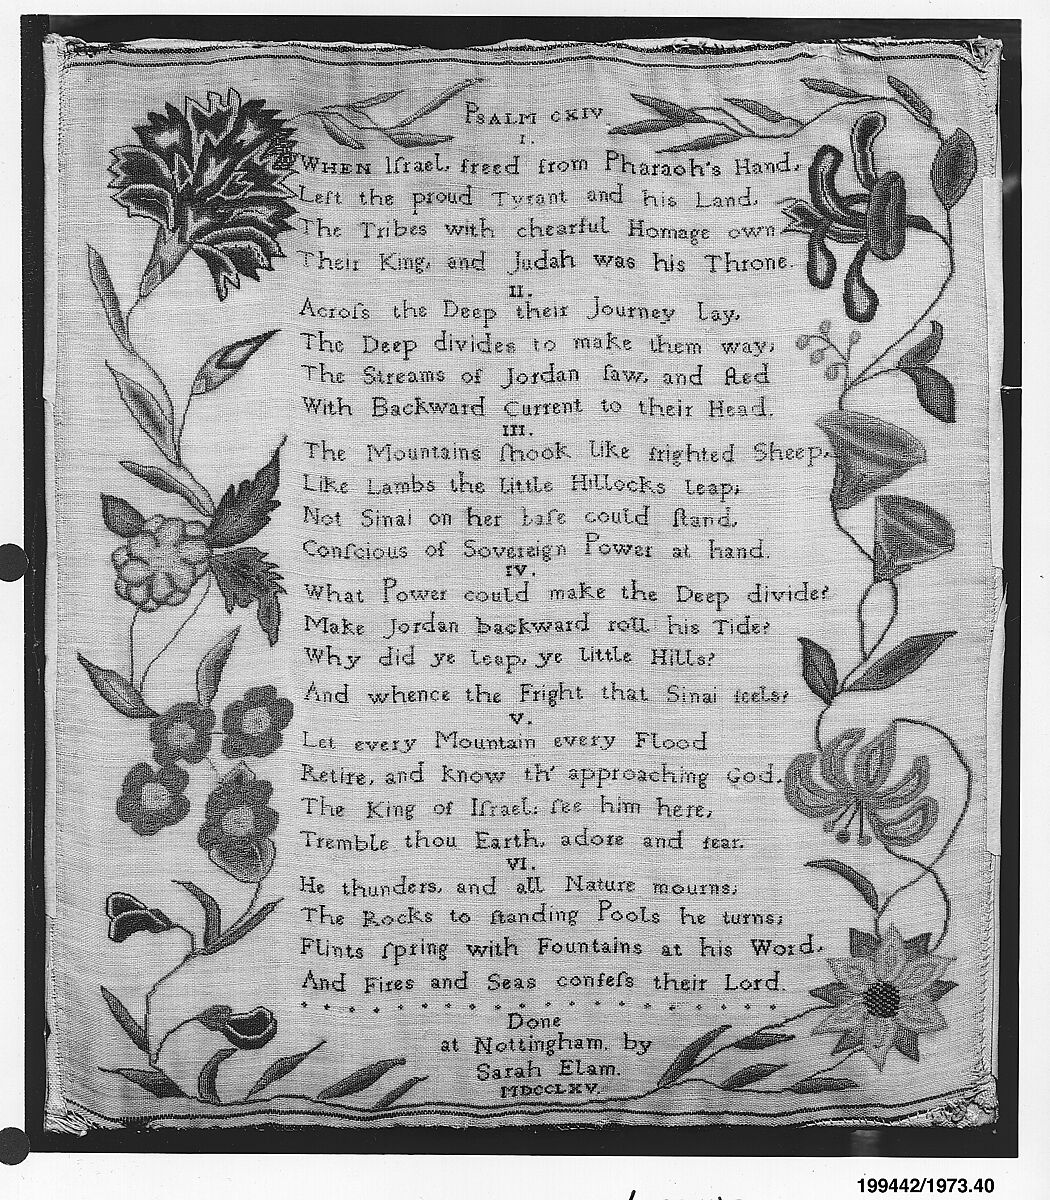 PSALM CXIV.
I.
WHEN Iſrael, freed from Pharaoh's Hand,
Left the proud Tyrant and his Land,
The Tribes with chearful Homage own
Their King, and Judah was his Throne.
II.
Acroſs the Deep their Journey lay,
The Deep divides to make them way;
The Streams of Jordan ſaw, and fled
With Backward Current to their Head.
III.
The Mountains ſhook like frighted Sheep,
Like Lambs the little Hillocks leap;
Not Sinai on her baſe could ſtand,
Conſcious of Sovereign Power at hand.
IV.
What Power could make the Deep divide?
Make Jordan backward roll his Tide?
Why did ye leap, ye little Hills?
And whence the Fright that Sinai feels?
V.
Let every Mountain every Flood
Retire, and know th' approaching God,
The King of Iſrael: ſee him here,
Tremble thou Earth, adore and fear.
VI.
He thunders, and all Nature mourns;
The Rocks to ſtanding Pools he turns;
Flints ſpring with Fountains at his Word,
And Fires and Seas confeſs their Lord.
Done
at Nottingham. by
Sarah Elam.
MDCCLXV.
199442/1973.40